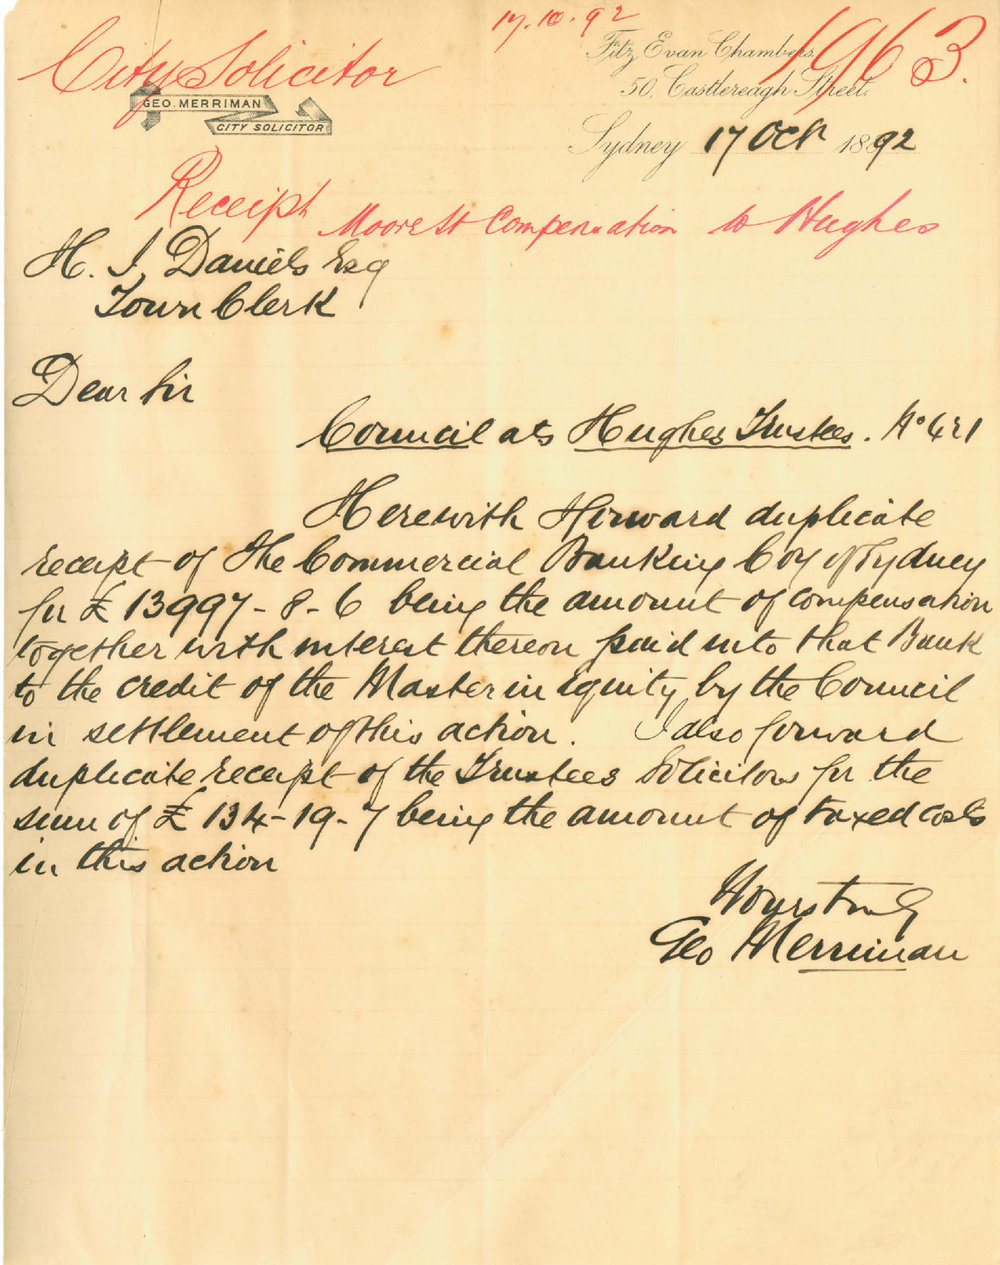 17.10.92
1963.
City Solicitor
Fitz Evan Chambers
50. Castlereagh Street.
GEO. MERRIMAN
CITY SOLICITOR
Sydney 17 Oct 1892
Receipt Moore St Compensation to Hughes
H. J. Daniels Esq
Town Clerk
Dear Sir
Council ats Hughes Trustees. No 421
Herewith I forward duplicate
receipt of the Commercial Banking Coy of Sydney
for £13997-8-6 being the amount of compensation
together with interest thereon paid into that Bank
to the credit of the Master in Equity by the Council
in settlement of this action. I also forward
duplicate receipt of the Trustees Solicitors for the
sum of £134-19-7 being the amount of taxed costs
in this action
Yours truly
Geo Merriman